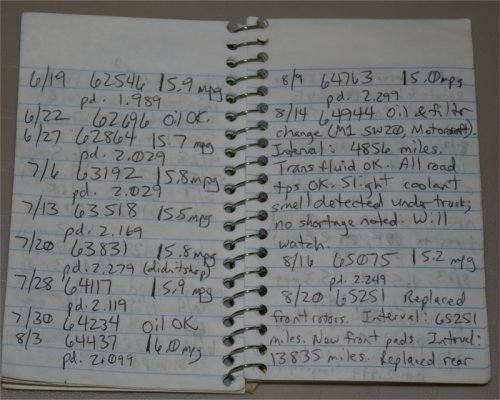 6/19 62546 15.9 mpg
pd. 1.989
6/22 62696 Oil OK.
6/27 62864 15.7 mpg
pd. 2.029
7/6 63192 15.8 mpg
pd. 2.029
7/13 63518 15.5 mpg
pd. 2.169
7/20 63831 15.8 mpg
pd. 2.279 (didn't shop)
7/28 64117 15.9 mpg
pd. 2.119
7/30 64234 oil OK
8/3 64437 16.0 mpg
pd. 2.099
8/9 64763 15.0 mpg
pd. 2.299
8/14 64944 Oil & filter
change (M1 5W20, Motorcraft).
Interval: 4856 miles.
Trans fluid OK. All road
tps OK. Slight coolant
smell detected under truck;
no shortage noted. Will
watch.
8/16 65075 15.2 mpg
pd. 2.249
8/20 65251 Replaced
front rotors. Interval: 65251
miles. New front pads. Interval:
13835 miles. Replaced rear